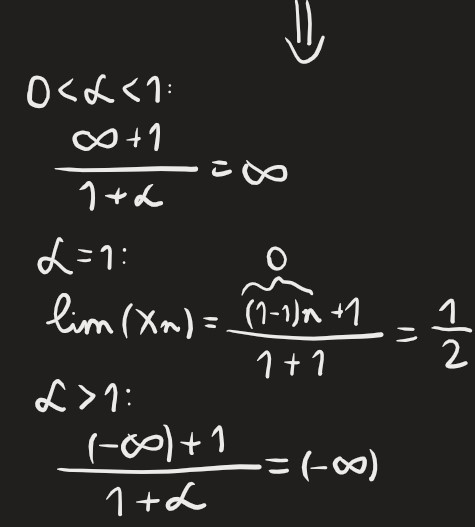 ⇓
0<α<1:
(∞+1)/(1+α) = ∞
α=1:
lim(xₙ) = ((1-1)n [⏞ 0] +1)/(1+1) = 1/2
α>1:
((-∞)+1)/(1+α) = (-∞)